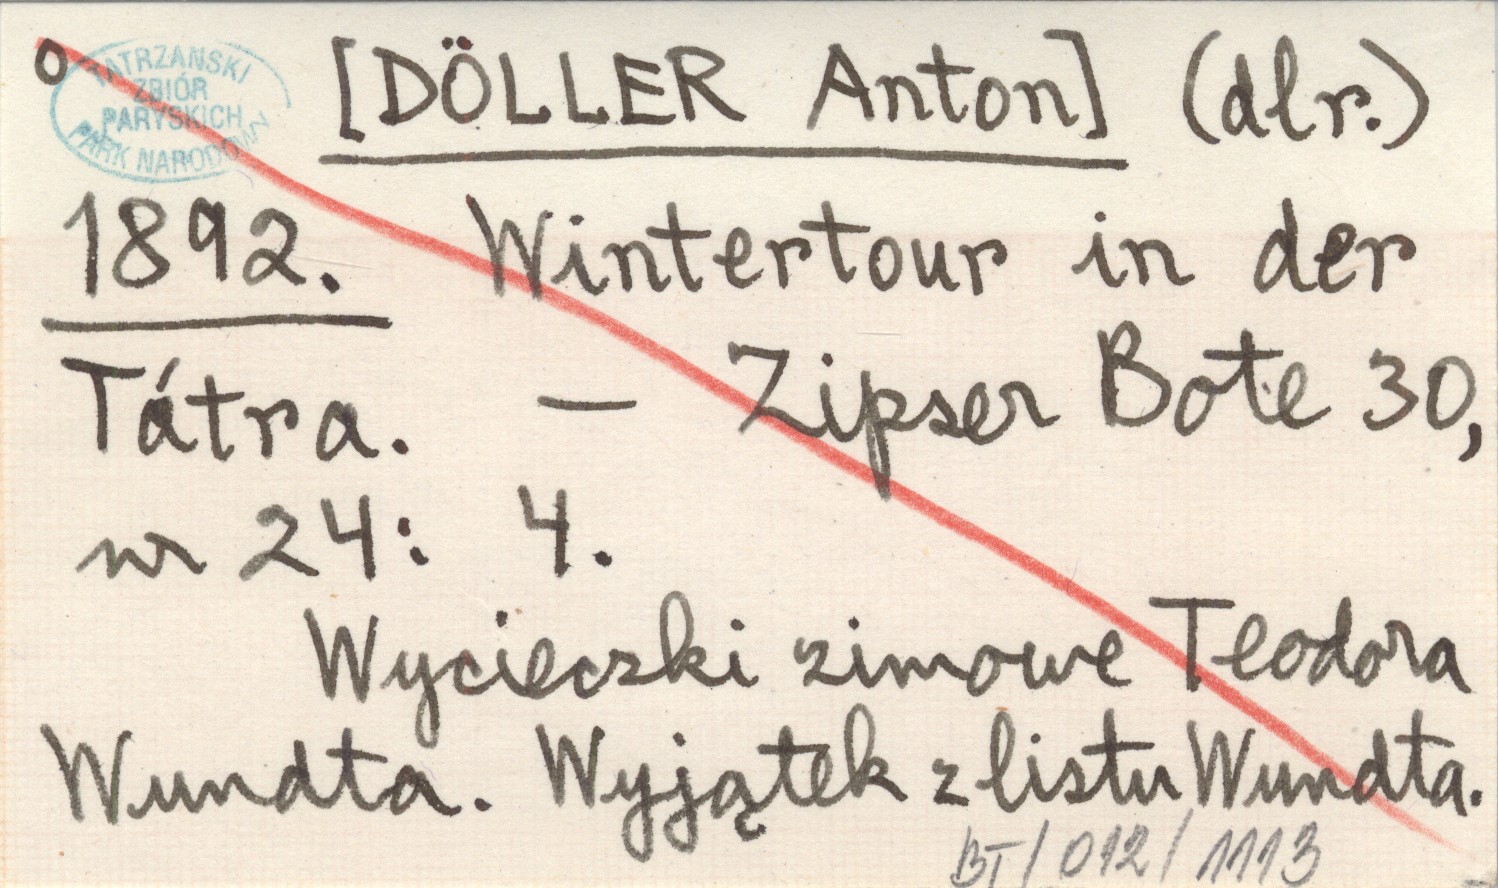 o
TATRZAŃSKI
ZBIÓR
PARYSKICH
PARK NARODOWY
[DÖLLER Anton] (dlr.)
1892. Wintertour in der
Tátra. — Zipser Bote 30,
nr 24: 4.
Wycieczki zimowe Teodora
Wundta. Wyjątek z listu Wundta.
BT/012/1113